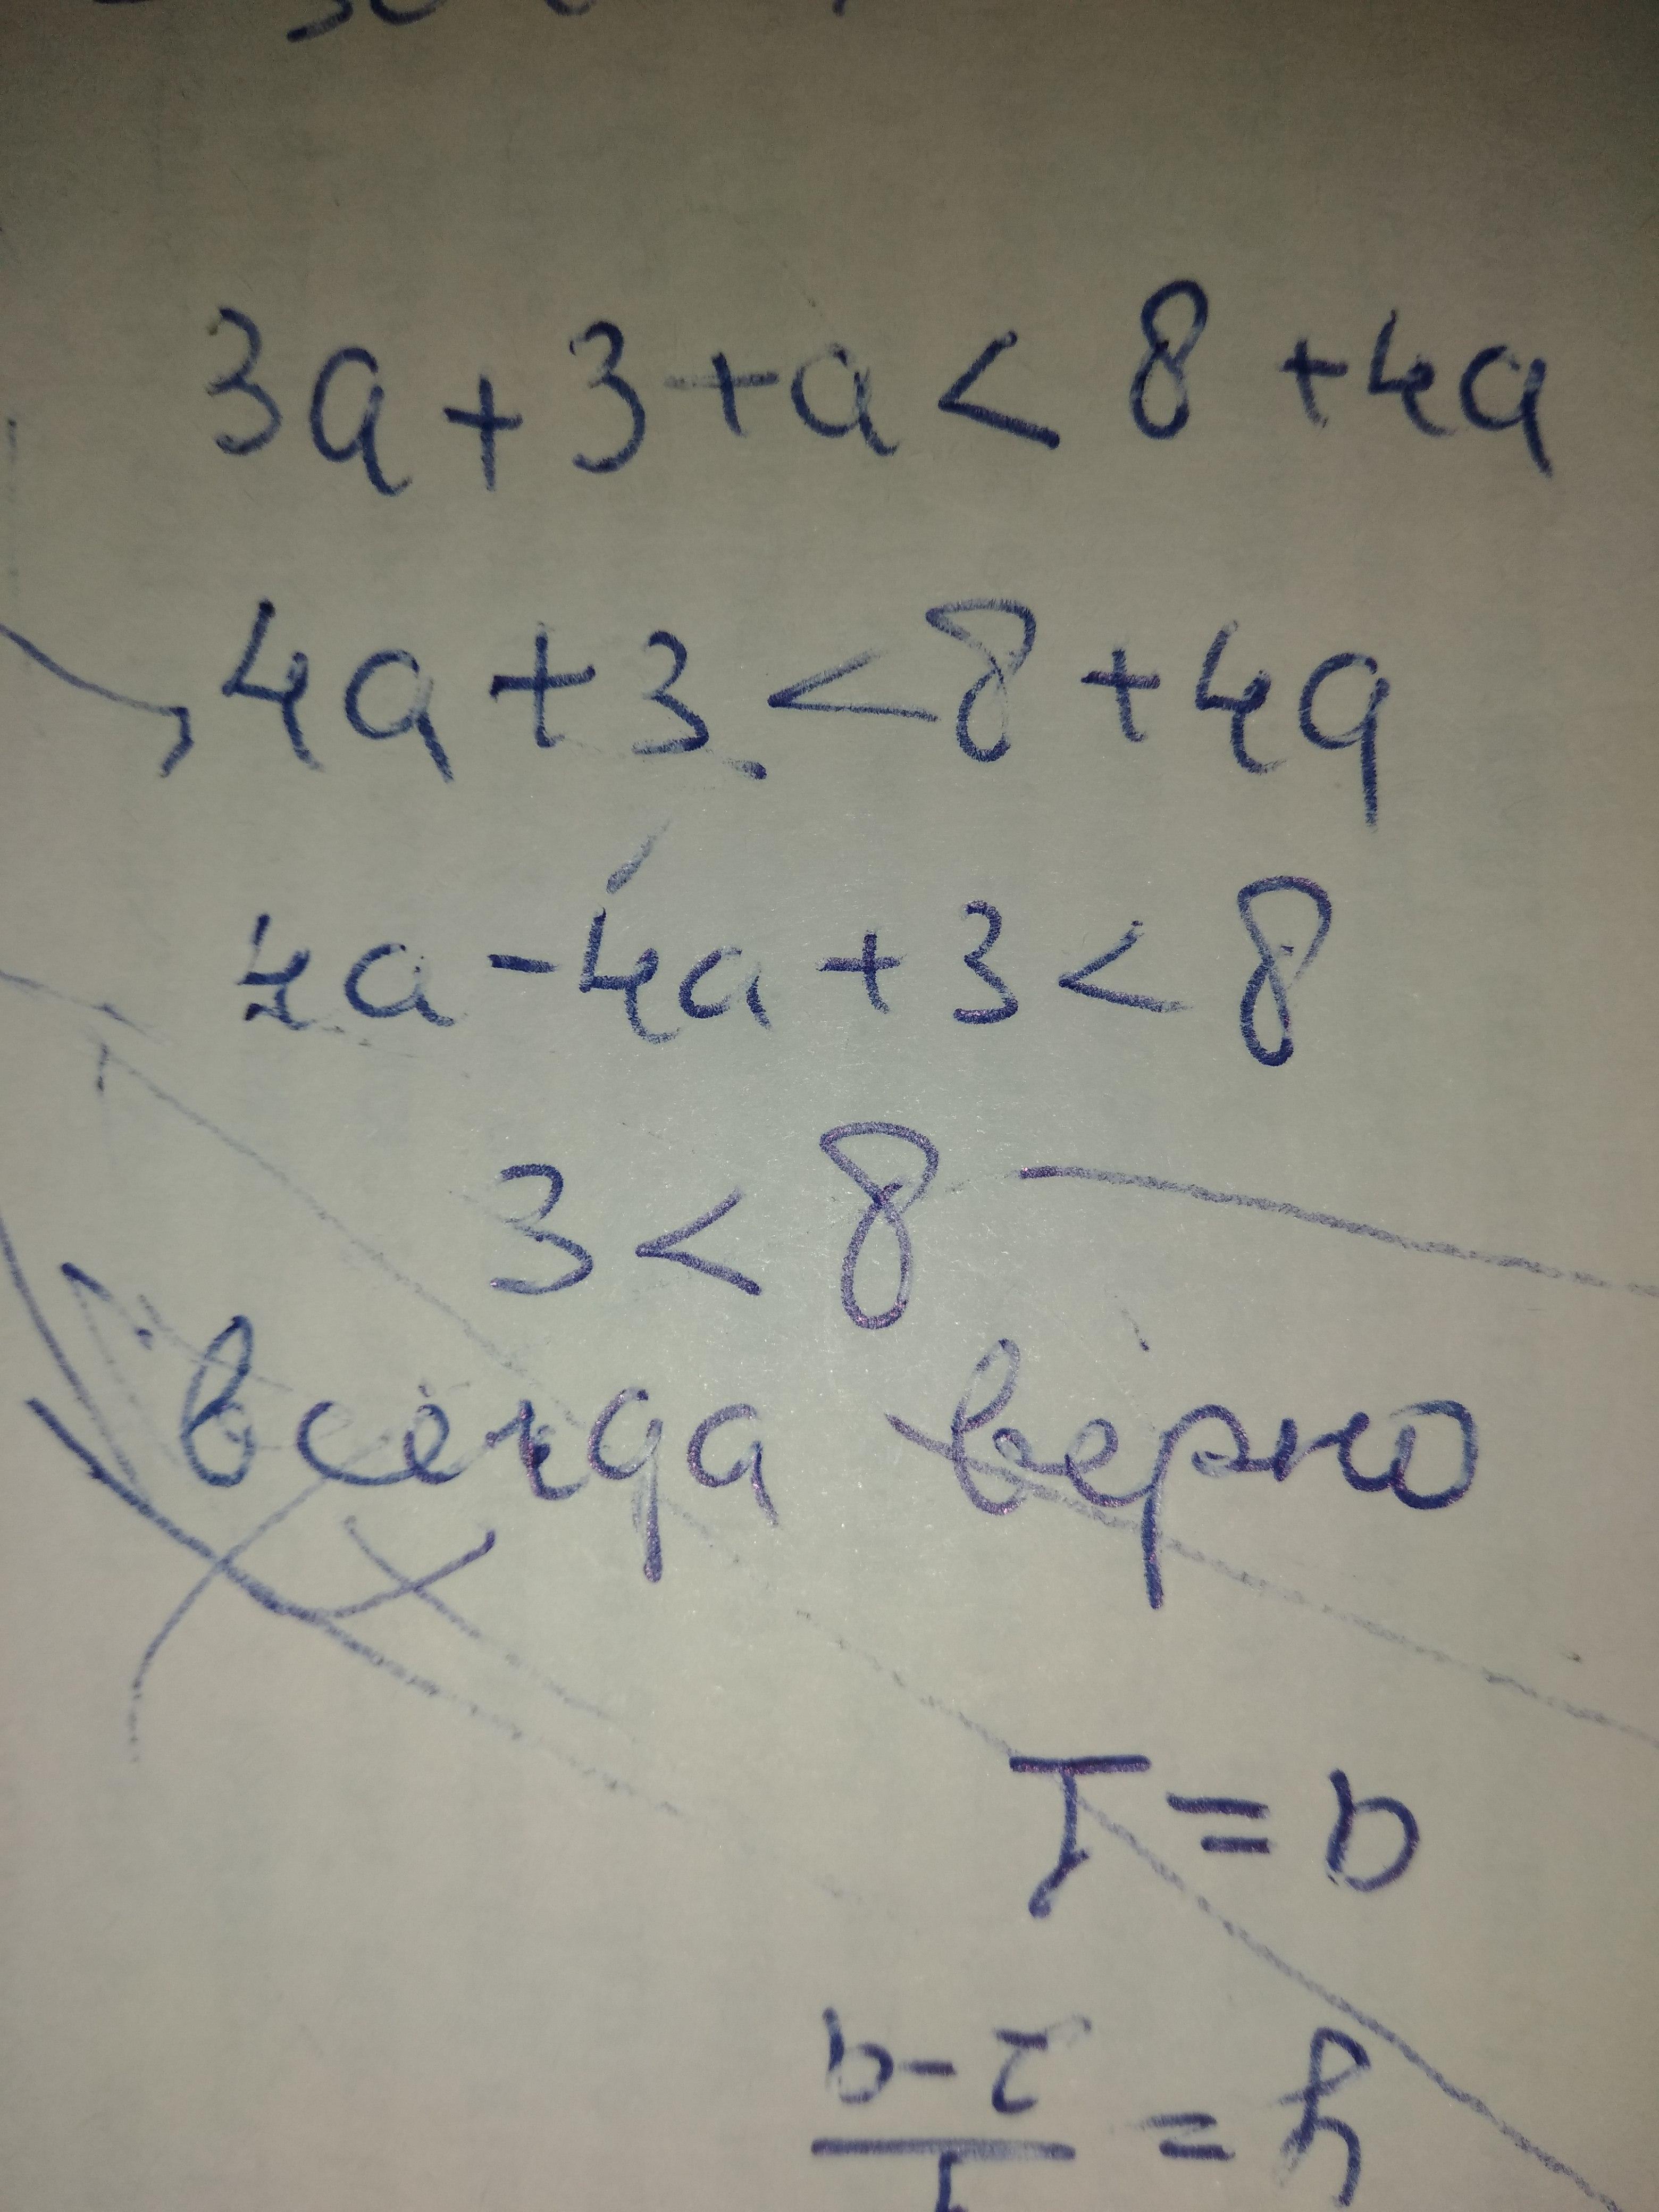 3a + 3 + a < 8 + 4a
4a + 3 < 8 + 4a
4a - 4a + 3 < 8
3 < 8
всегда верно
a = 1
y = 1/2-a